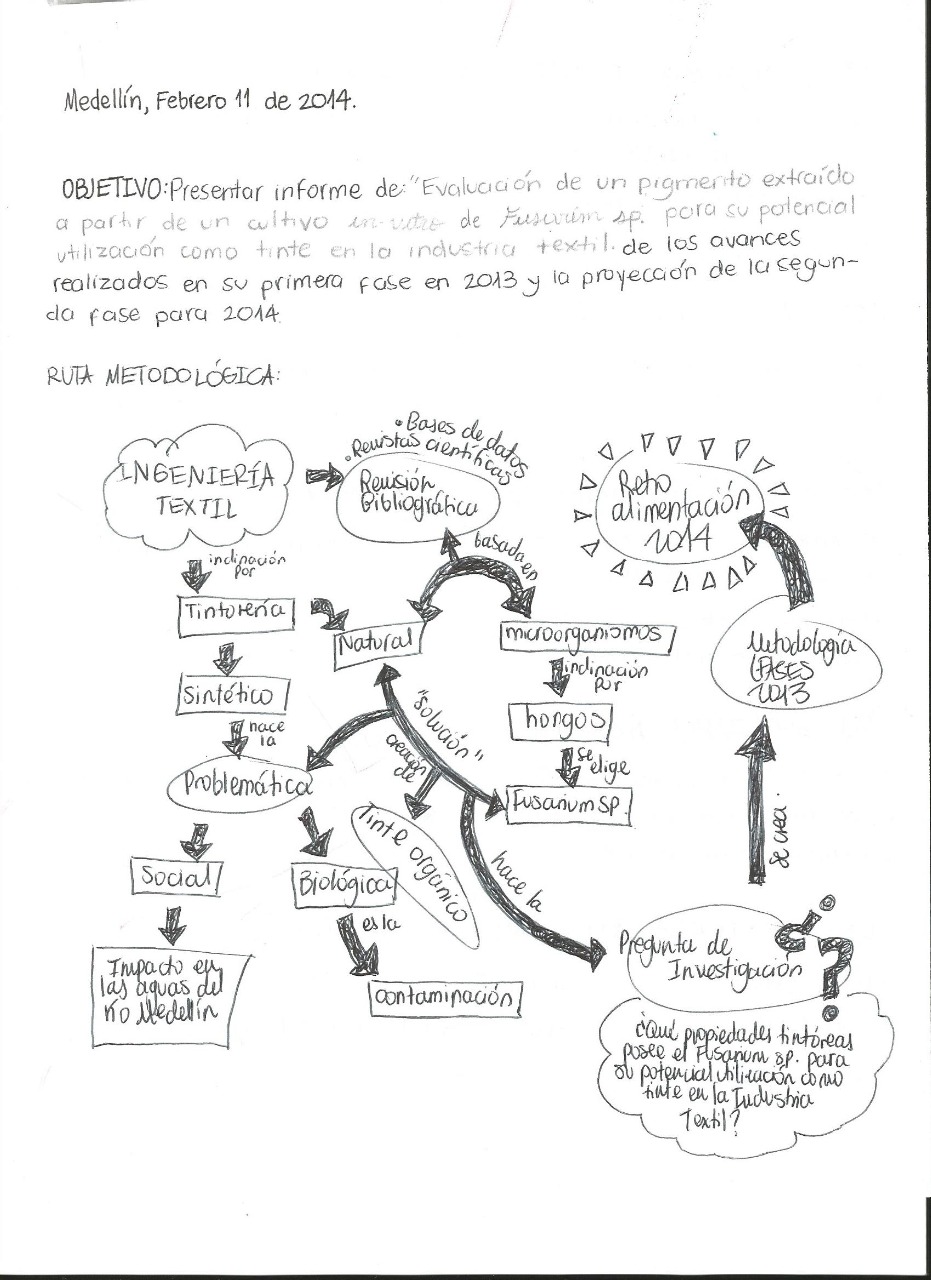 Medellín, Febrero 11 de 2014.
OBJETIVO: Presentar informe de: "Evaluación de un pigmento extraído
a partir de un cultivo in-vitro de Fusarium sp. para su potencial
utilización como tinte en la industria textil. de los avances
realizados en su primera fase en 2013 y la proyección de la segun-
da fase para 2014.
RUTA METODOLÓGICA:
INGENIERÍA
TEXTIL
• Bases de datos
• Revistas científicas
Revisión
Bibliográfica
Retro
alimentación
2014
inclinación
por
basada en
Tintorería
Natural
microorganismos
Metodología
FASES
2013
inclinación
por
Sintético
hongos
"solución"
nace
la
creación
de
se
elige
Problemática
Fusarium sp.
Tinte orgánico
se crea.
Social
Biológica
nace la
es la
Impacto en
las aguas del
río Medellín
contaminación
Pregunta de
Investigación
¿?
¿Qué propiedades tintóreas
posee el Fusarium sp. para
su potencial utilización como
tinte en la Industria
Textil?